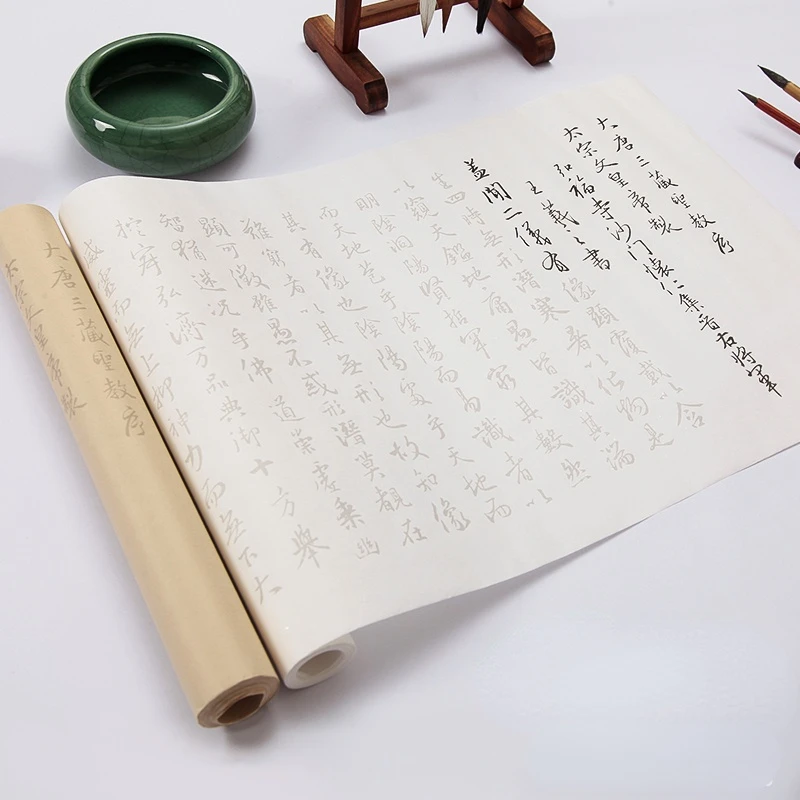 大唐三藏聖教序
太宗文皇帝製
弘福寺沙門懷仁集晉右將軍
王羲之書
蓋聞二儀有像顯覆載以含
生四時無形潛寒暑以化物是
以窺天鑑地庸愚皆識其端
明陰洞陽賢哲罕窮其數然
而天地苞乎陰陽而易識者以
其有像也陰陽處乎天地而
難窮者以其無形也故知像
顯可徵雖愚不惑形潛莫覩在
智猶迷況乎佛道崇虛乘幽
控寂弘濟萬品典御十方舉
威靈而無上抑神力而無下大
大唐三藏聖教序
太宗文皇帝製